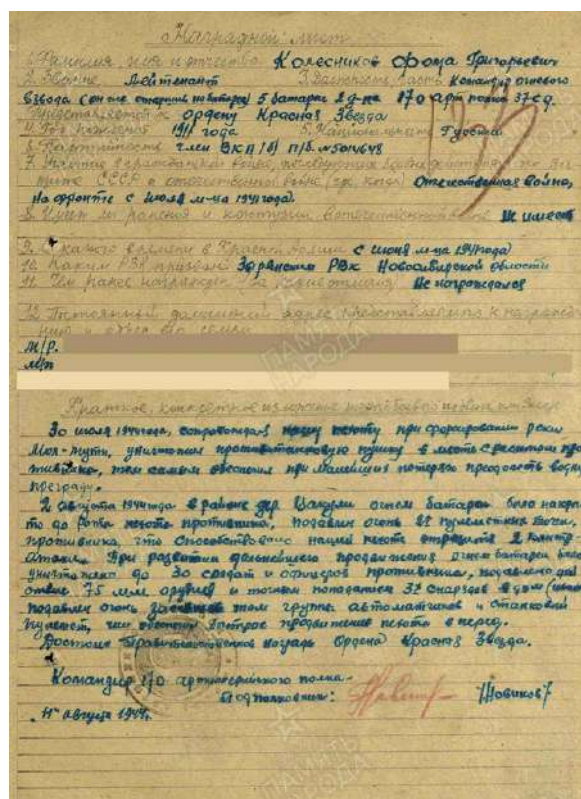 Наградной лист
1. Фамилия, имя и отчество Колесников Фома Григорьевич
2. Звание Лейтенант 3. Должность, часть Командир огневого
взвода (он же старший на батарее) 5 батареи 2 д-на 170 арт полка 37 с.д.
Представляется к ордену Красная Звезда
4. Год рождения 1911 года 5. Национальность Русский
6. Партийность член ВКП(б) п/б. №
7. Участие в гражданской войне, последующих боевых действиях по за-
щите СССР и отечественной войне (где, когда) Отечественная война,
на фронте с июля м-ца 1941 года.
8. Имеет ли ранения и контузии в отечественной войне Не имеет
9. С какого времени в Красной Армии с июня м-ца 1941 года
10. Каким РВК призван Зырянским РВК Новосибирской области
11. Чем ранее награжден (за какие отличия) Не награждался
12. Постоянный домашний адрес представляемого к награжде-
нию и адрес его семьи
М/Р.
Краткое, конкретное изложение личного боевого подвига или заслуг
30 июля 1944 года, сопровождая нашу пехоту при форсировании реки
уничтожил противотанковую пушку в месте с расчетом про
тивника, тем самым обеспечил при малейших потерях преодолеть водную
преграду.
2 августа 1944 года в районе дер. огнем батареи было накры
то до роты пехоты противника, подавлен огонь пулеметных точек,
противника, что способствовало нашей пехоте отразить 2 контр-
атаки. При развитии дальнейшего продвижения огнем батареи было
уничтожено до 30 солдат и офицеров противника, подавлено
75 м.м. орудия и точным попаданием снарядов в дом
подавлен огонь в том группы автоматчиков и станковый
пулемет, чем обеспечил быстрое продвижение пехоты в перед.
Достоин Правительственной награды Ордена Красная Звезда.
Командир 170 артиллерийского полка-
Подполковник: /Новиков/
"11" августа 1944г.
ПАМЯТЬ НАРОДА
ПАМЯТЬ НАРОДА